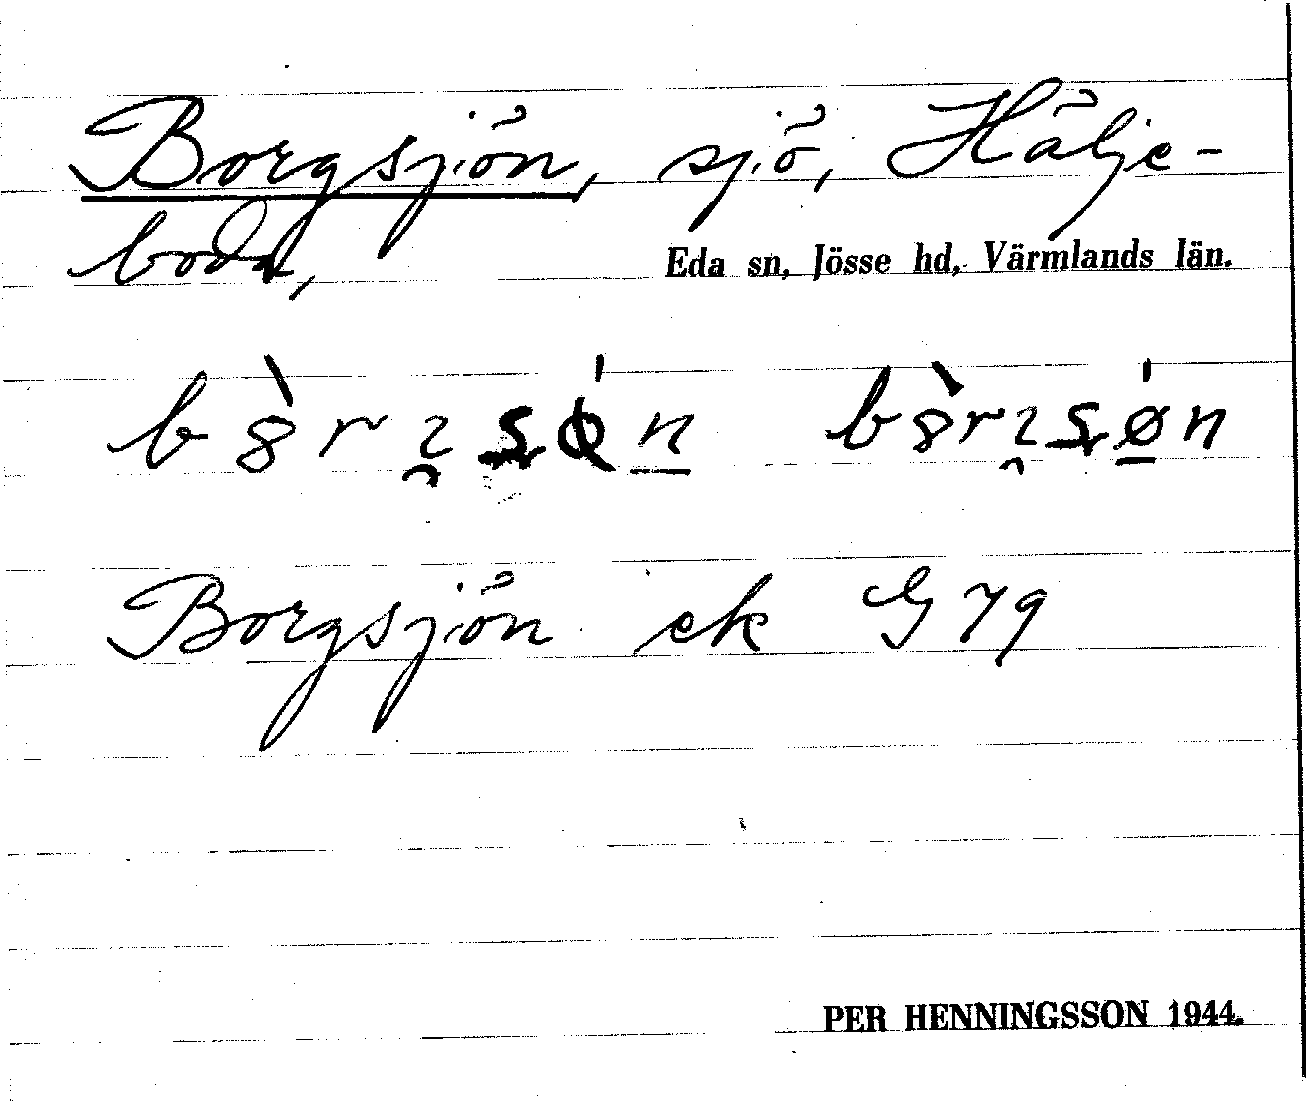 Borgsjön, sjö, Hälje-
boda,
Eda sn, Jösse hd, Värmlands län.
Borgsjön ek G 79
PER HENNINGSSON 1944.